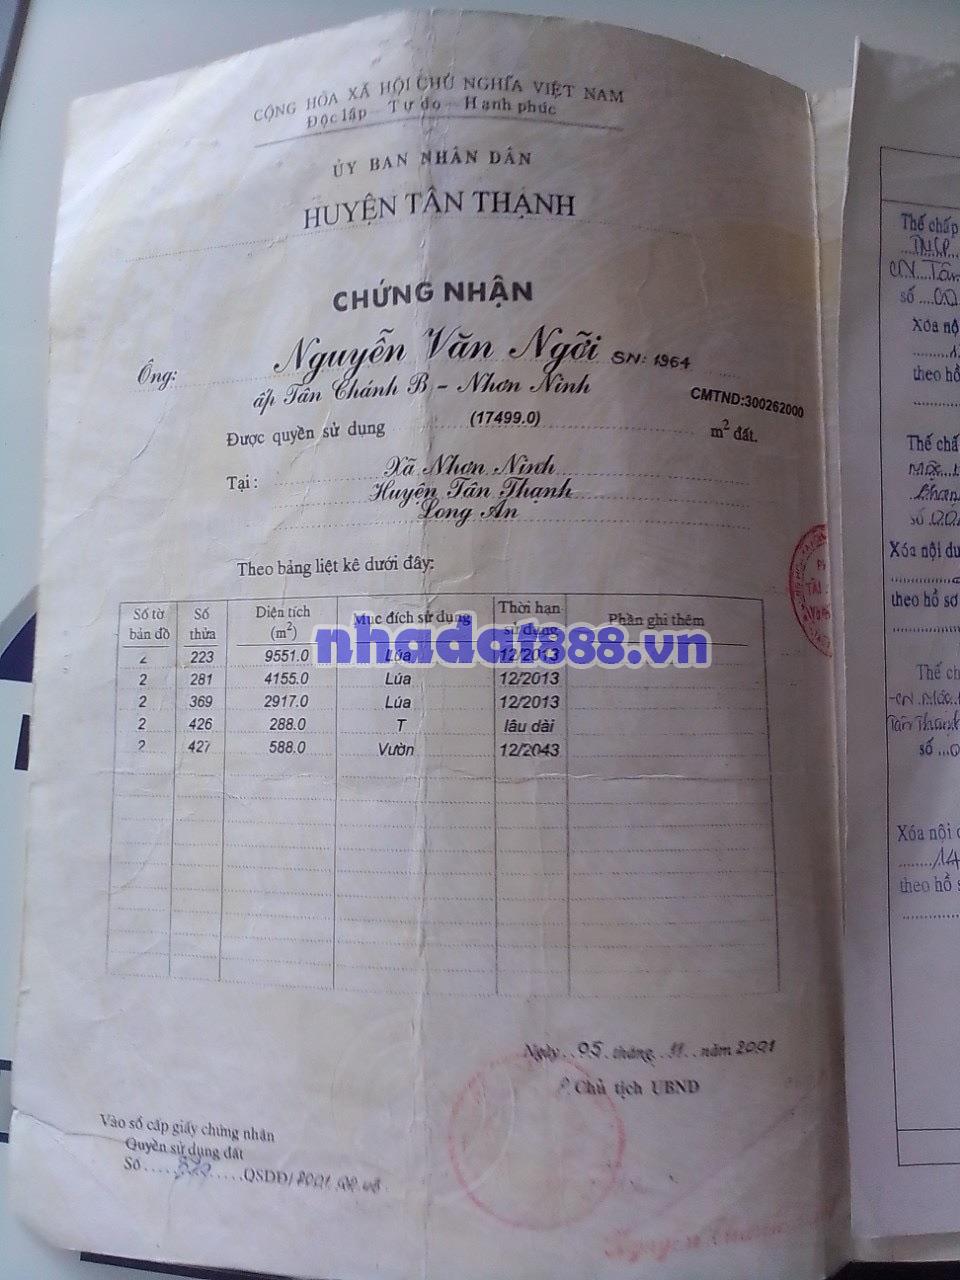 CỘNG HÒA XÃ HỘI CHỦ NGHĨA VIỆT NAM
Độc lập - Tự do - Hạnh phúc
ỦY BAN NHÂN DÂN
HUYỆN TÂN THẠNH
CHỨNG NHẬN
Ông: Nguyễn Văn Ngỡi SN: 1964
ấp Tân Chánh B - Nhơn Ninh CMTND:300262000
Được quyền sử dụng (17499.0) m² đất.
Tại: Xã Nhơn Ninh
Huyện Tân Thạnh
Long An
Theo bảng liệt kê dưới đây:
Số tờ bản đồ Số thửa Diện tích (m²) Mục đích sử dụng Thời hạn sử dụng Phần ghi thêm
2 223 9551.0 Lúa 12/2013
2 281 4155.0 Lúa 12/2013
2 369 2917.0 Lúa 12/2013
2 426 288.0 T lâu dài
2 427 588.0 Vườn 12/2043
nhadat888.vn
Ngày 05 tháng 11 năm 2001
Chủ tịch UBND
Vào sổ cấp giấy chứng nhận
Quyền sử dụng đất
Số QSDĐ/
Nguyễn
Thế chấp
CN Tân
số
Xóa nộ
theo hồ
Thế chấ
số
Xóa nội du
theo hồ sơ
Thế ch
Tân Thạnh
số
Xóa nội
14
theo hồ s